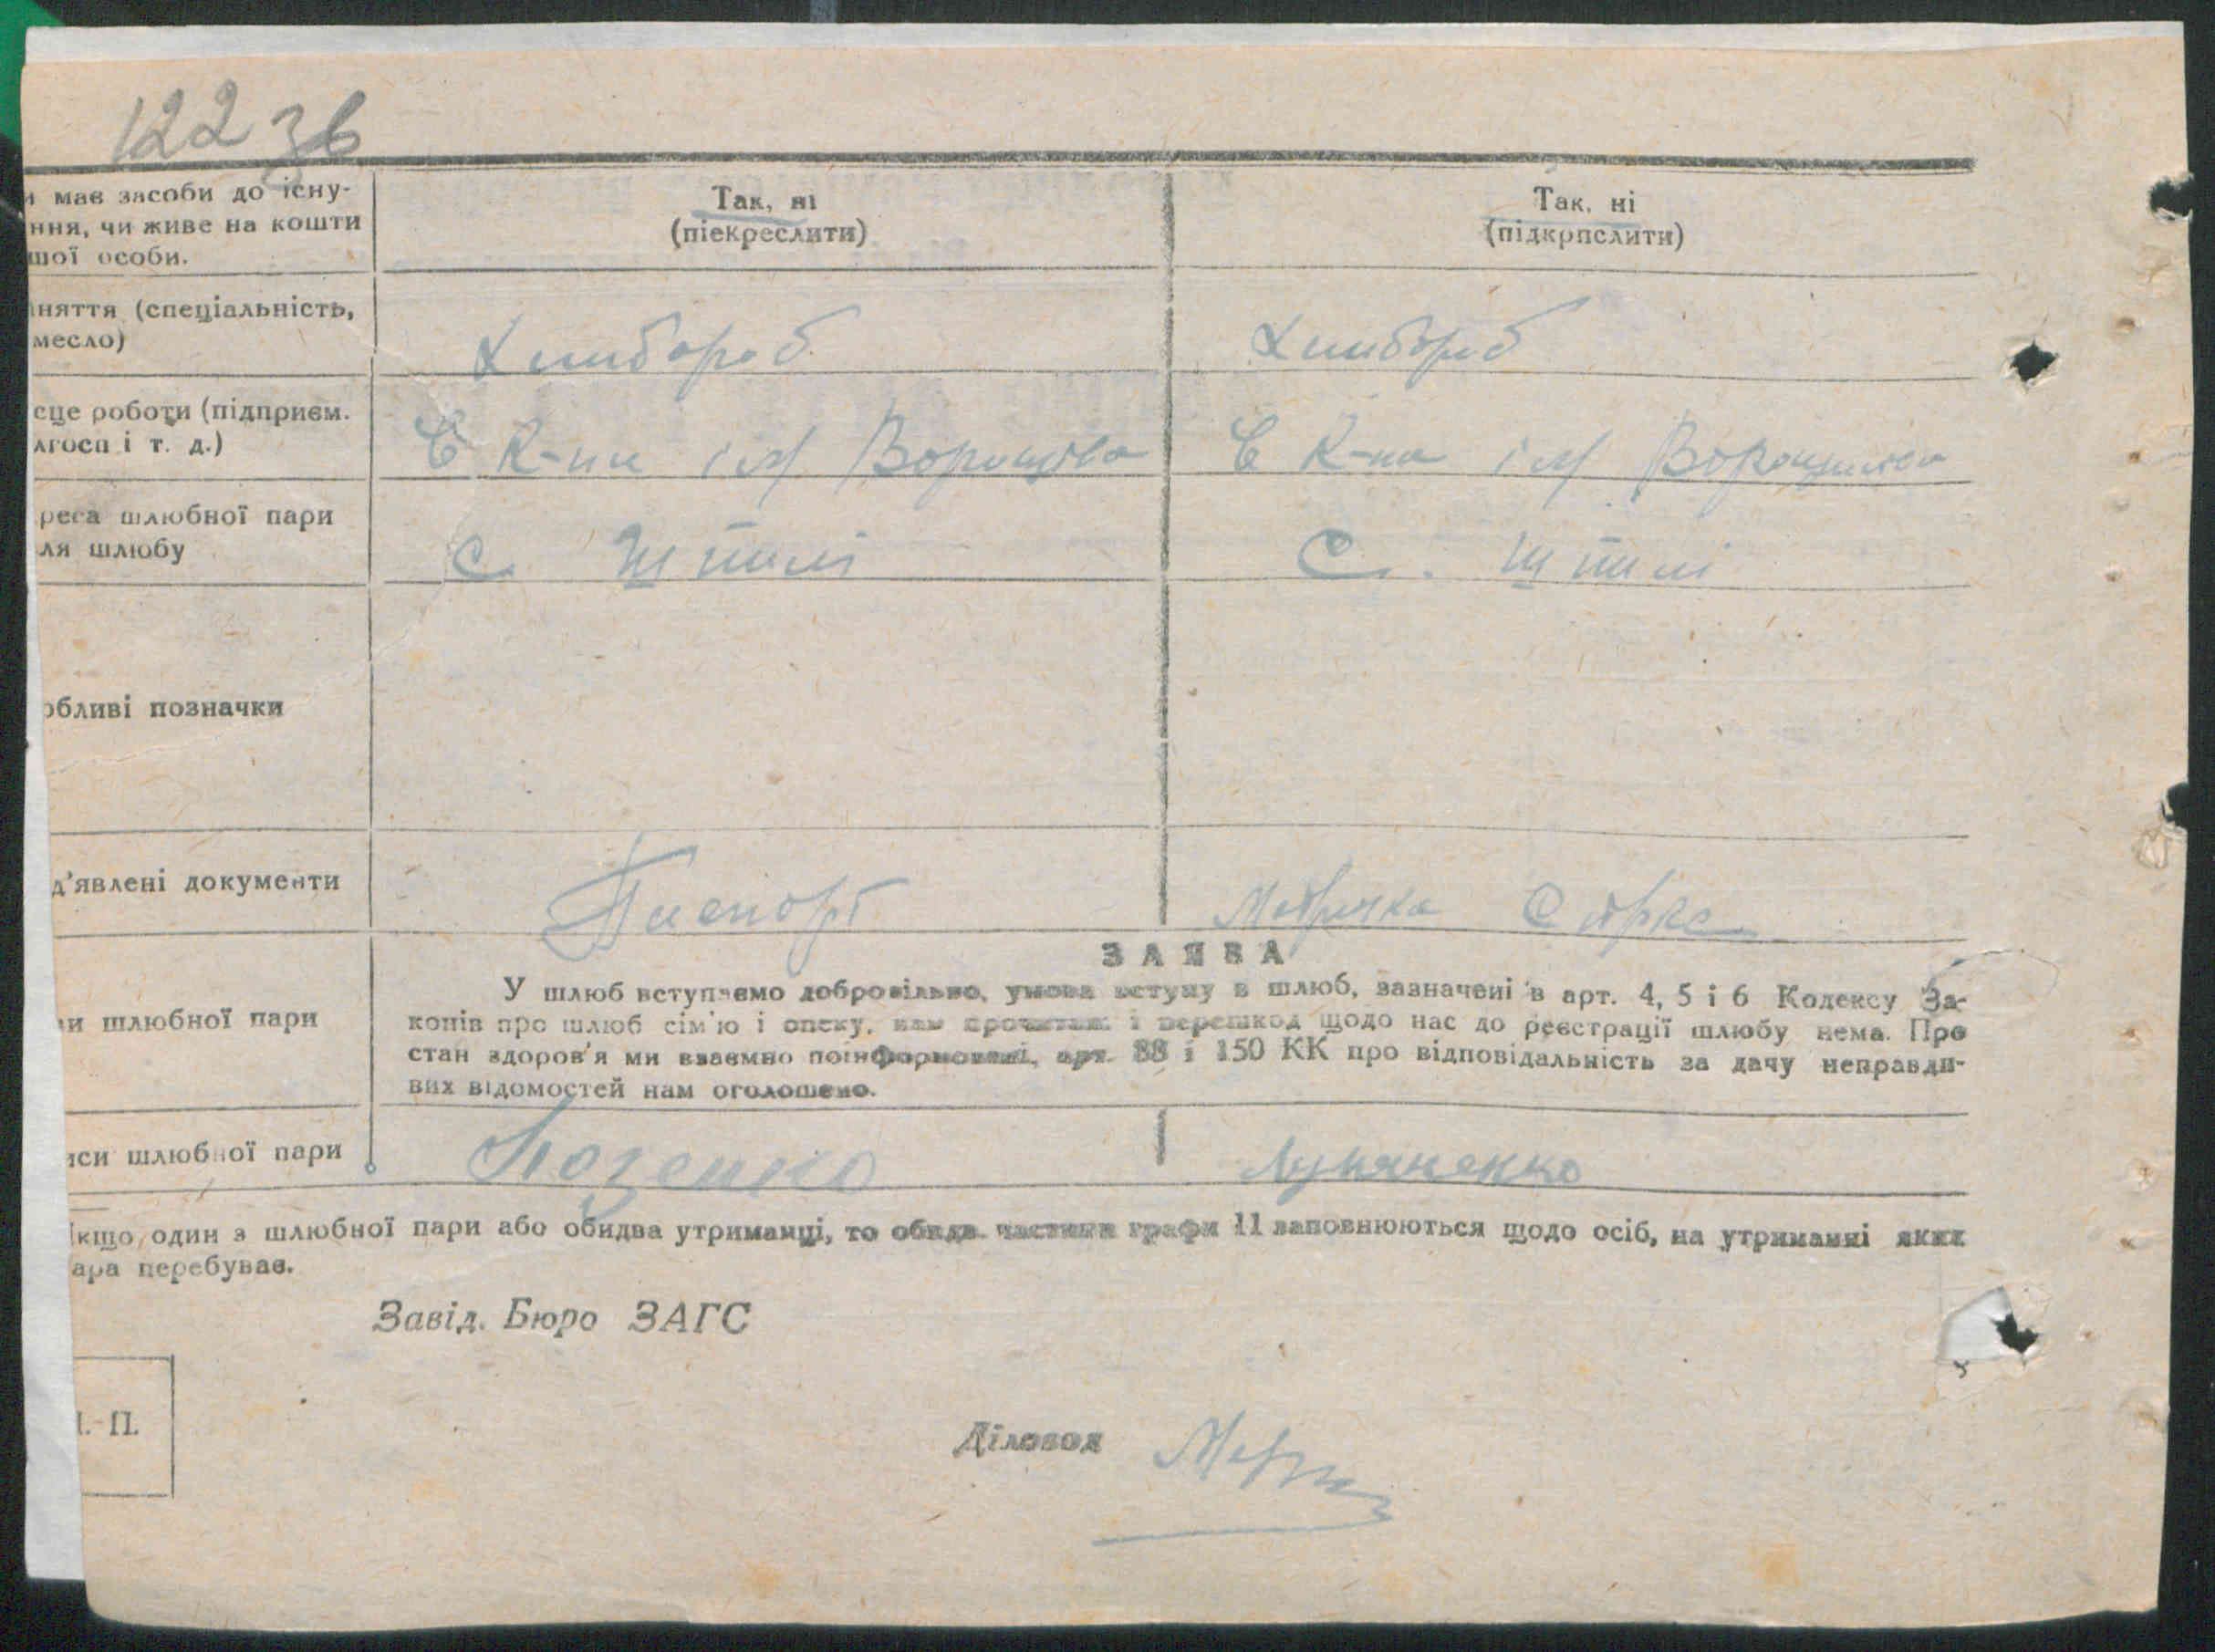 122 36
и має засоби до існу-
ння, чи живе на кошти
шої особи.
Так, ні
(піекреслити)
Так, ні
(підкрпслити)
няття (спеціальність,
месло)
Хлибороб
Хлибороб
сце роботи (підприєм.
лгосп і т. д.)
К-на ім Ворошилова
К-на ім Ворошилова
реса шлюбної пари
ля шлюбу
с. Штилі
С. Штилі
обливі позначки
д'явлені документи
Паспорт
Метричка
ЗАЯВА
и шлюбної пари
У шлюб вступаємо добровільно, умова вступу в шлюб, зазначені в арт. 4, 5 і 6 Кодексу За-
конів про шлюб сім'ю і опеку, нам прочитані і перешкод щодо нас до реєстрації шлюбу нема. Про
стан здоров'я ми взаємно поінформовані, арт. 88 і 150 КК про відповідальність за дачу неправди-
вих відомостей нам оголошено.
иси шлюбної пари
Лузяненко
кщо один з шлюбної пари або обидва утриманці, то обидв. частини графи 11 заповнюються щодо осіб, на утриманні яких
ара перебуває.
Завід. Бюро ЗАГС
. П.
Діловод